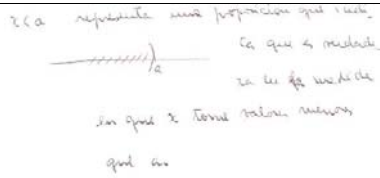 x < a representa una proposición que indi
ca que es verdade
ra en la medida
en que x tome valores menores
que a